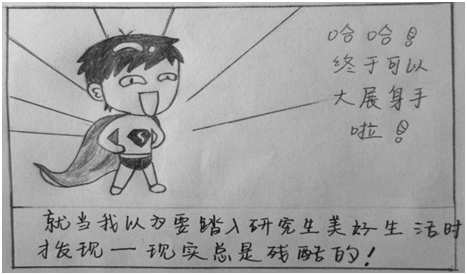 哈哈!
终于可以
大展身手
啦!
就当我以为要踏入研究生美好生活时
才发现—现实总是残酷的!